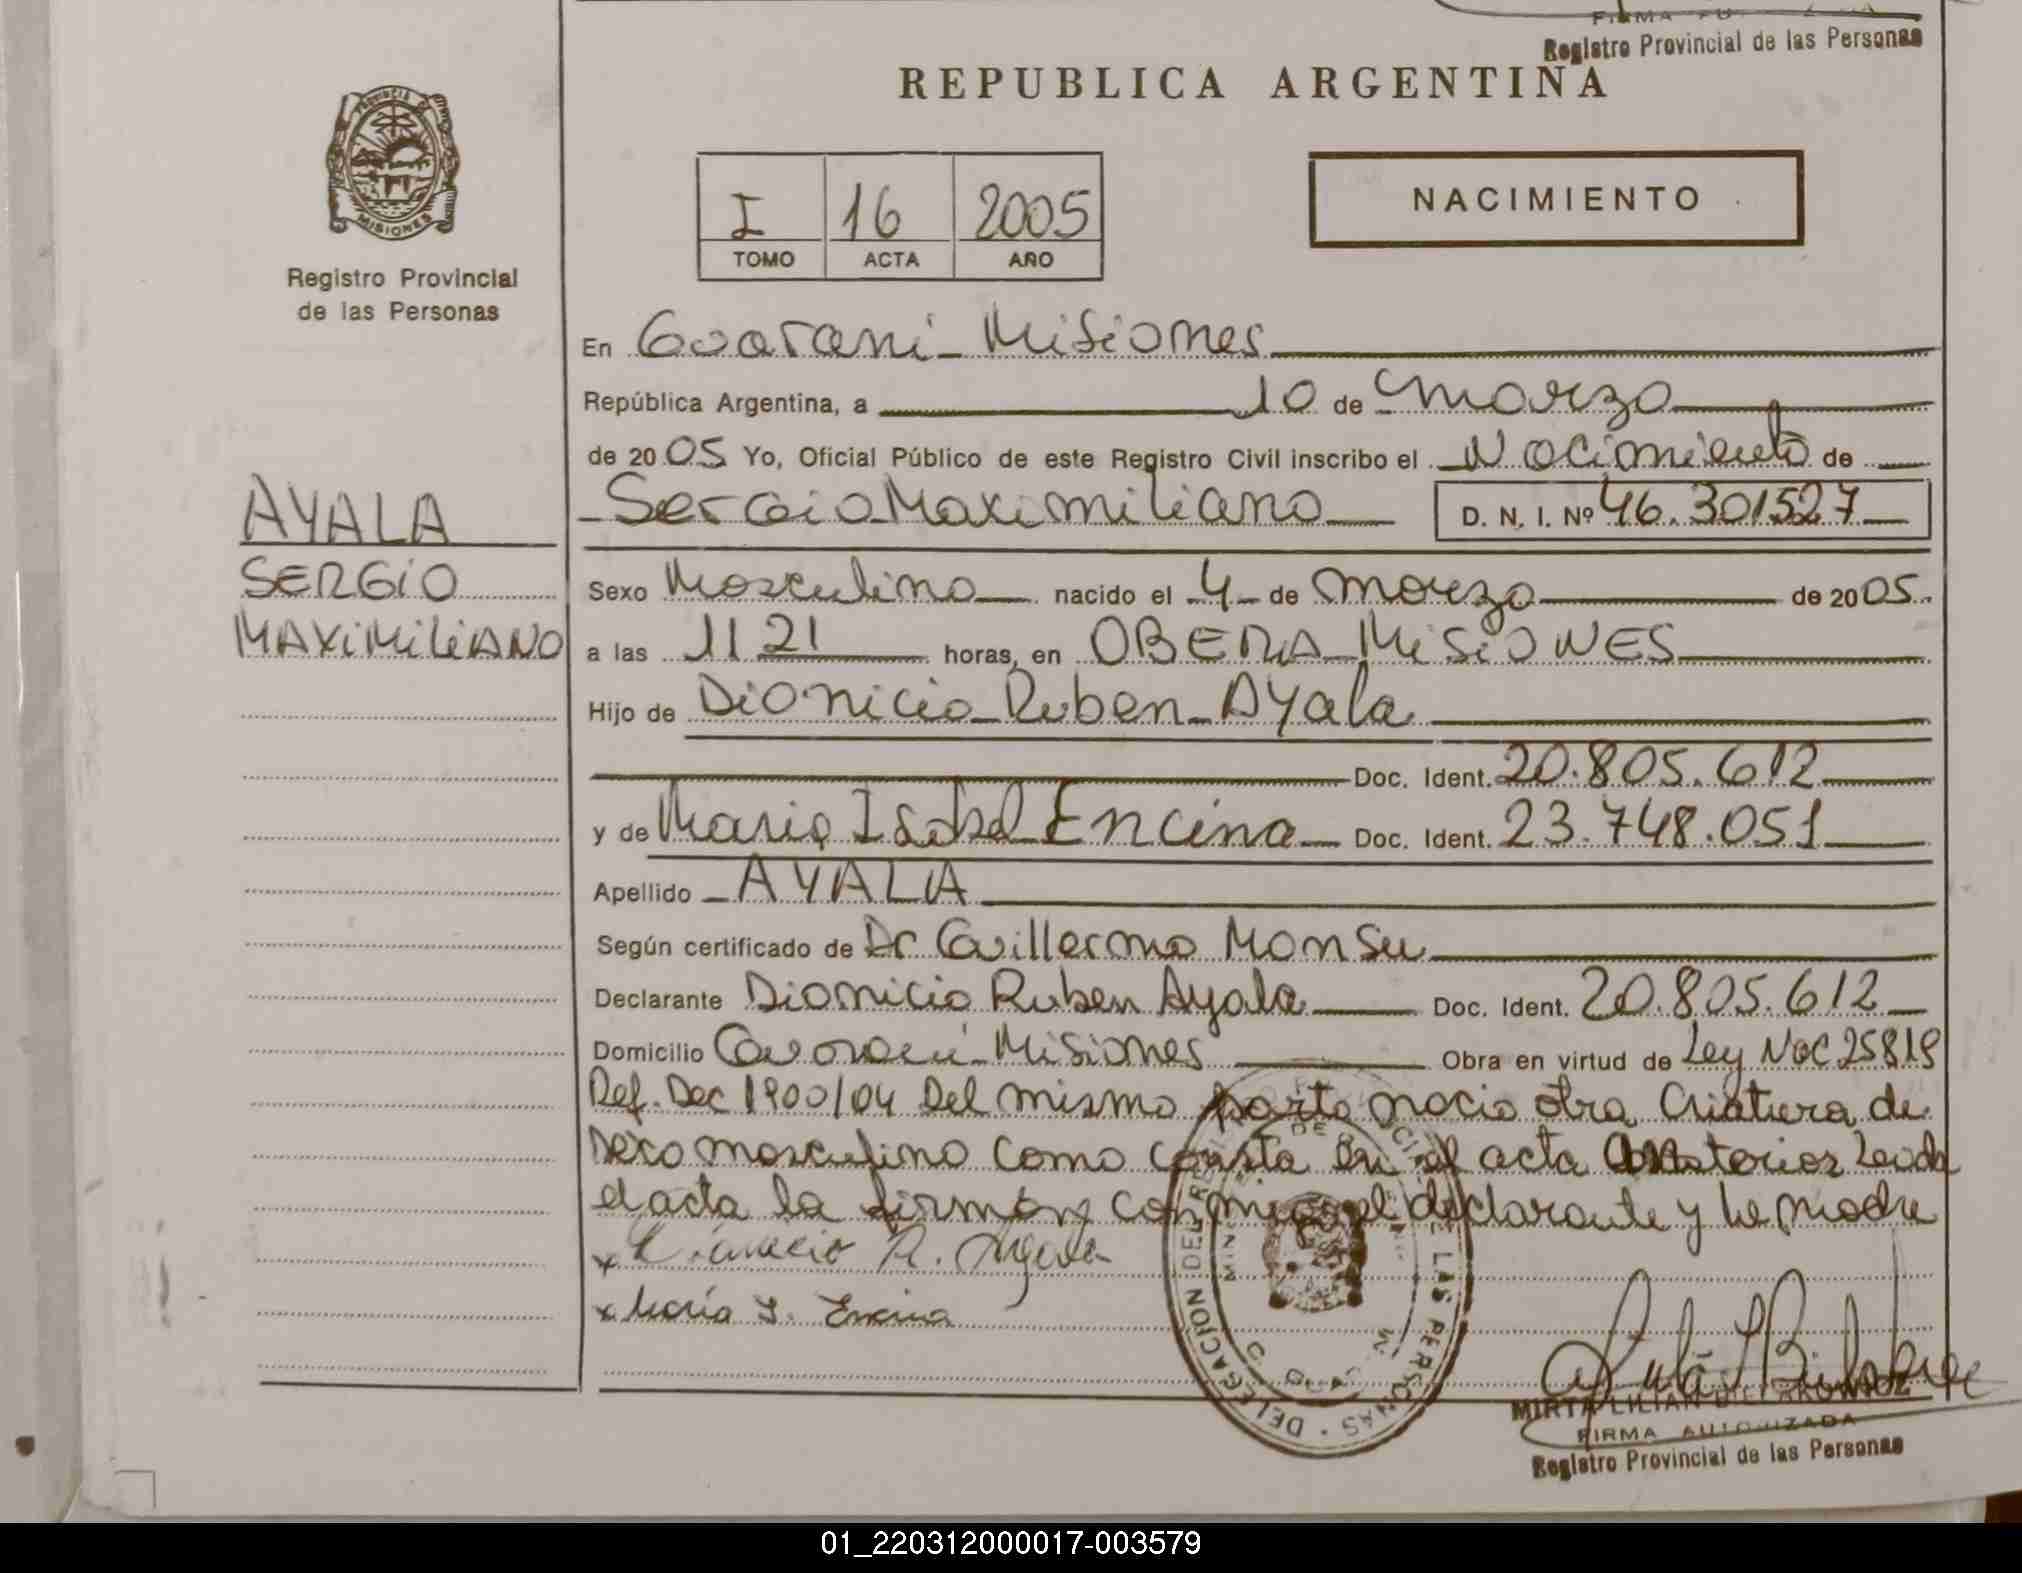 Registro Provincial de las Personas
REPUBLICA ARGENTINA
PROVINCIA DE
MISIONES
Registro Provincial
de las Personas
I 16 2005
TOMO ACTA AÑO
NACIMIENTO
En Guarani - Misiones
República Argentina, a 10 de marzo
de 2005 Yo, Oficial Público de este Registro Civil inscribo el Nacimiento de
Sergio Maximiliano D. N. I. Nº 46.301527
AYALA
SERGIO
MAXIMILIANO
Sexo Masculino nacido el 4 de marzo de 2005
a las 11 21 horas, en OBERA MISIONES
Hijo de Dionicio Ruben Ayala
Doc. Ident. 20.805.612
y de Maria Isabel Encina Doc. Ident. 23.748.051
Apellido AYALA
Según certificado de Dr Guillermo Monsu
Declarante Dionicio Ruben Ayala Doc. Ident. 20.805.612
Domicilio Guarani - Misiones Obra en virtud de Ley Nac 25819
Ref. Dec 1900/04 Del mismo parto nacio otra Criatura de
sexo masculino como consta en el acta anterior Leida
el acta la firman conmigo el declarante y la madre
x Dionicio R. Ayala
x María I. Encina
DELEGACION DEL REG DE LAS PERSONAS
MIRTA LILIAN
FIRMA AUTORIZADA
Registro Provincial de las Personas
01_220312000017-003579